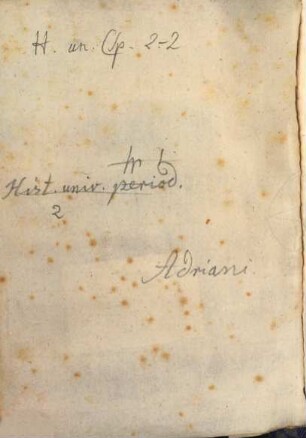 H. un. Cp. 2-2
Hist. univ. period.
2
Adriani